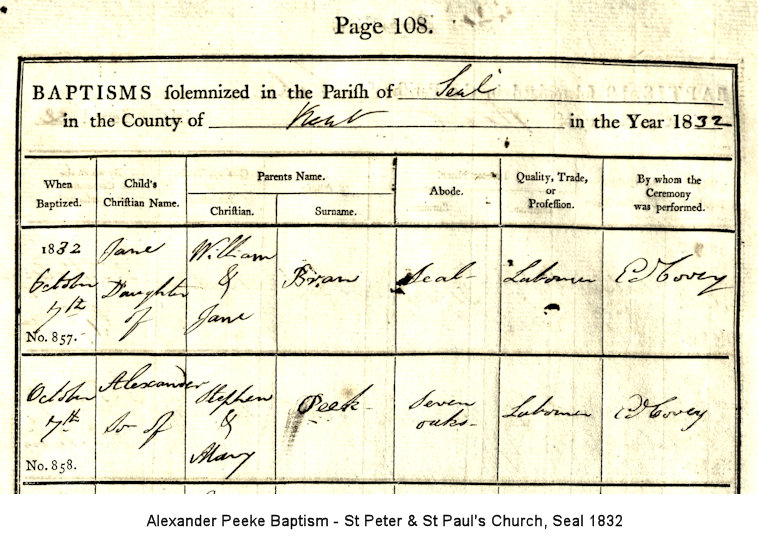 Page 108.
BAPTISMS ſolemnized in the Pariſh of Seal
in the County of Kent in the Year 1832
When Baptized.
Child's Chriſtian Name.
Parents Name.
Chriſtian.
Surname.
Abode.
Quality, Trade, or Profeſſion.
By whom the Ceremony was performed.
1832
October
7th
No. 857.
Jane
Daughter
of
William
&
Jane
Seal
Labourer
October
7th
No. 858.
Alexander
Son of
Stephen
&
Mary
Peek
Seven
oaks
Labourer
Alexander Peeke Baptism - St Peter & St Paul's Church, Seal 1832